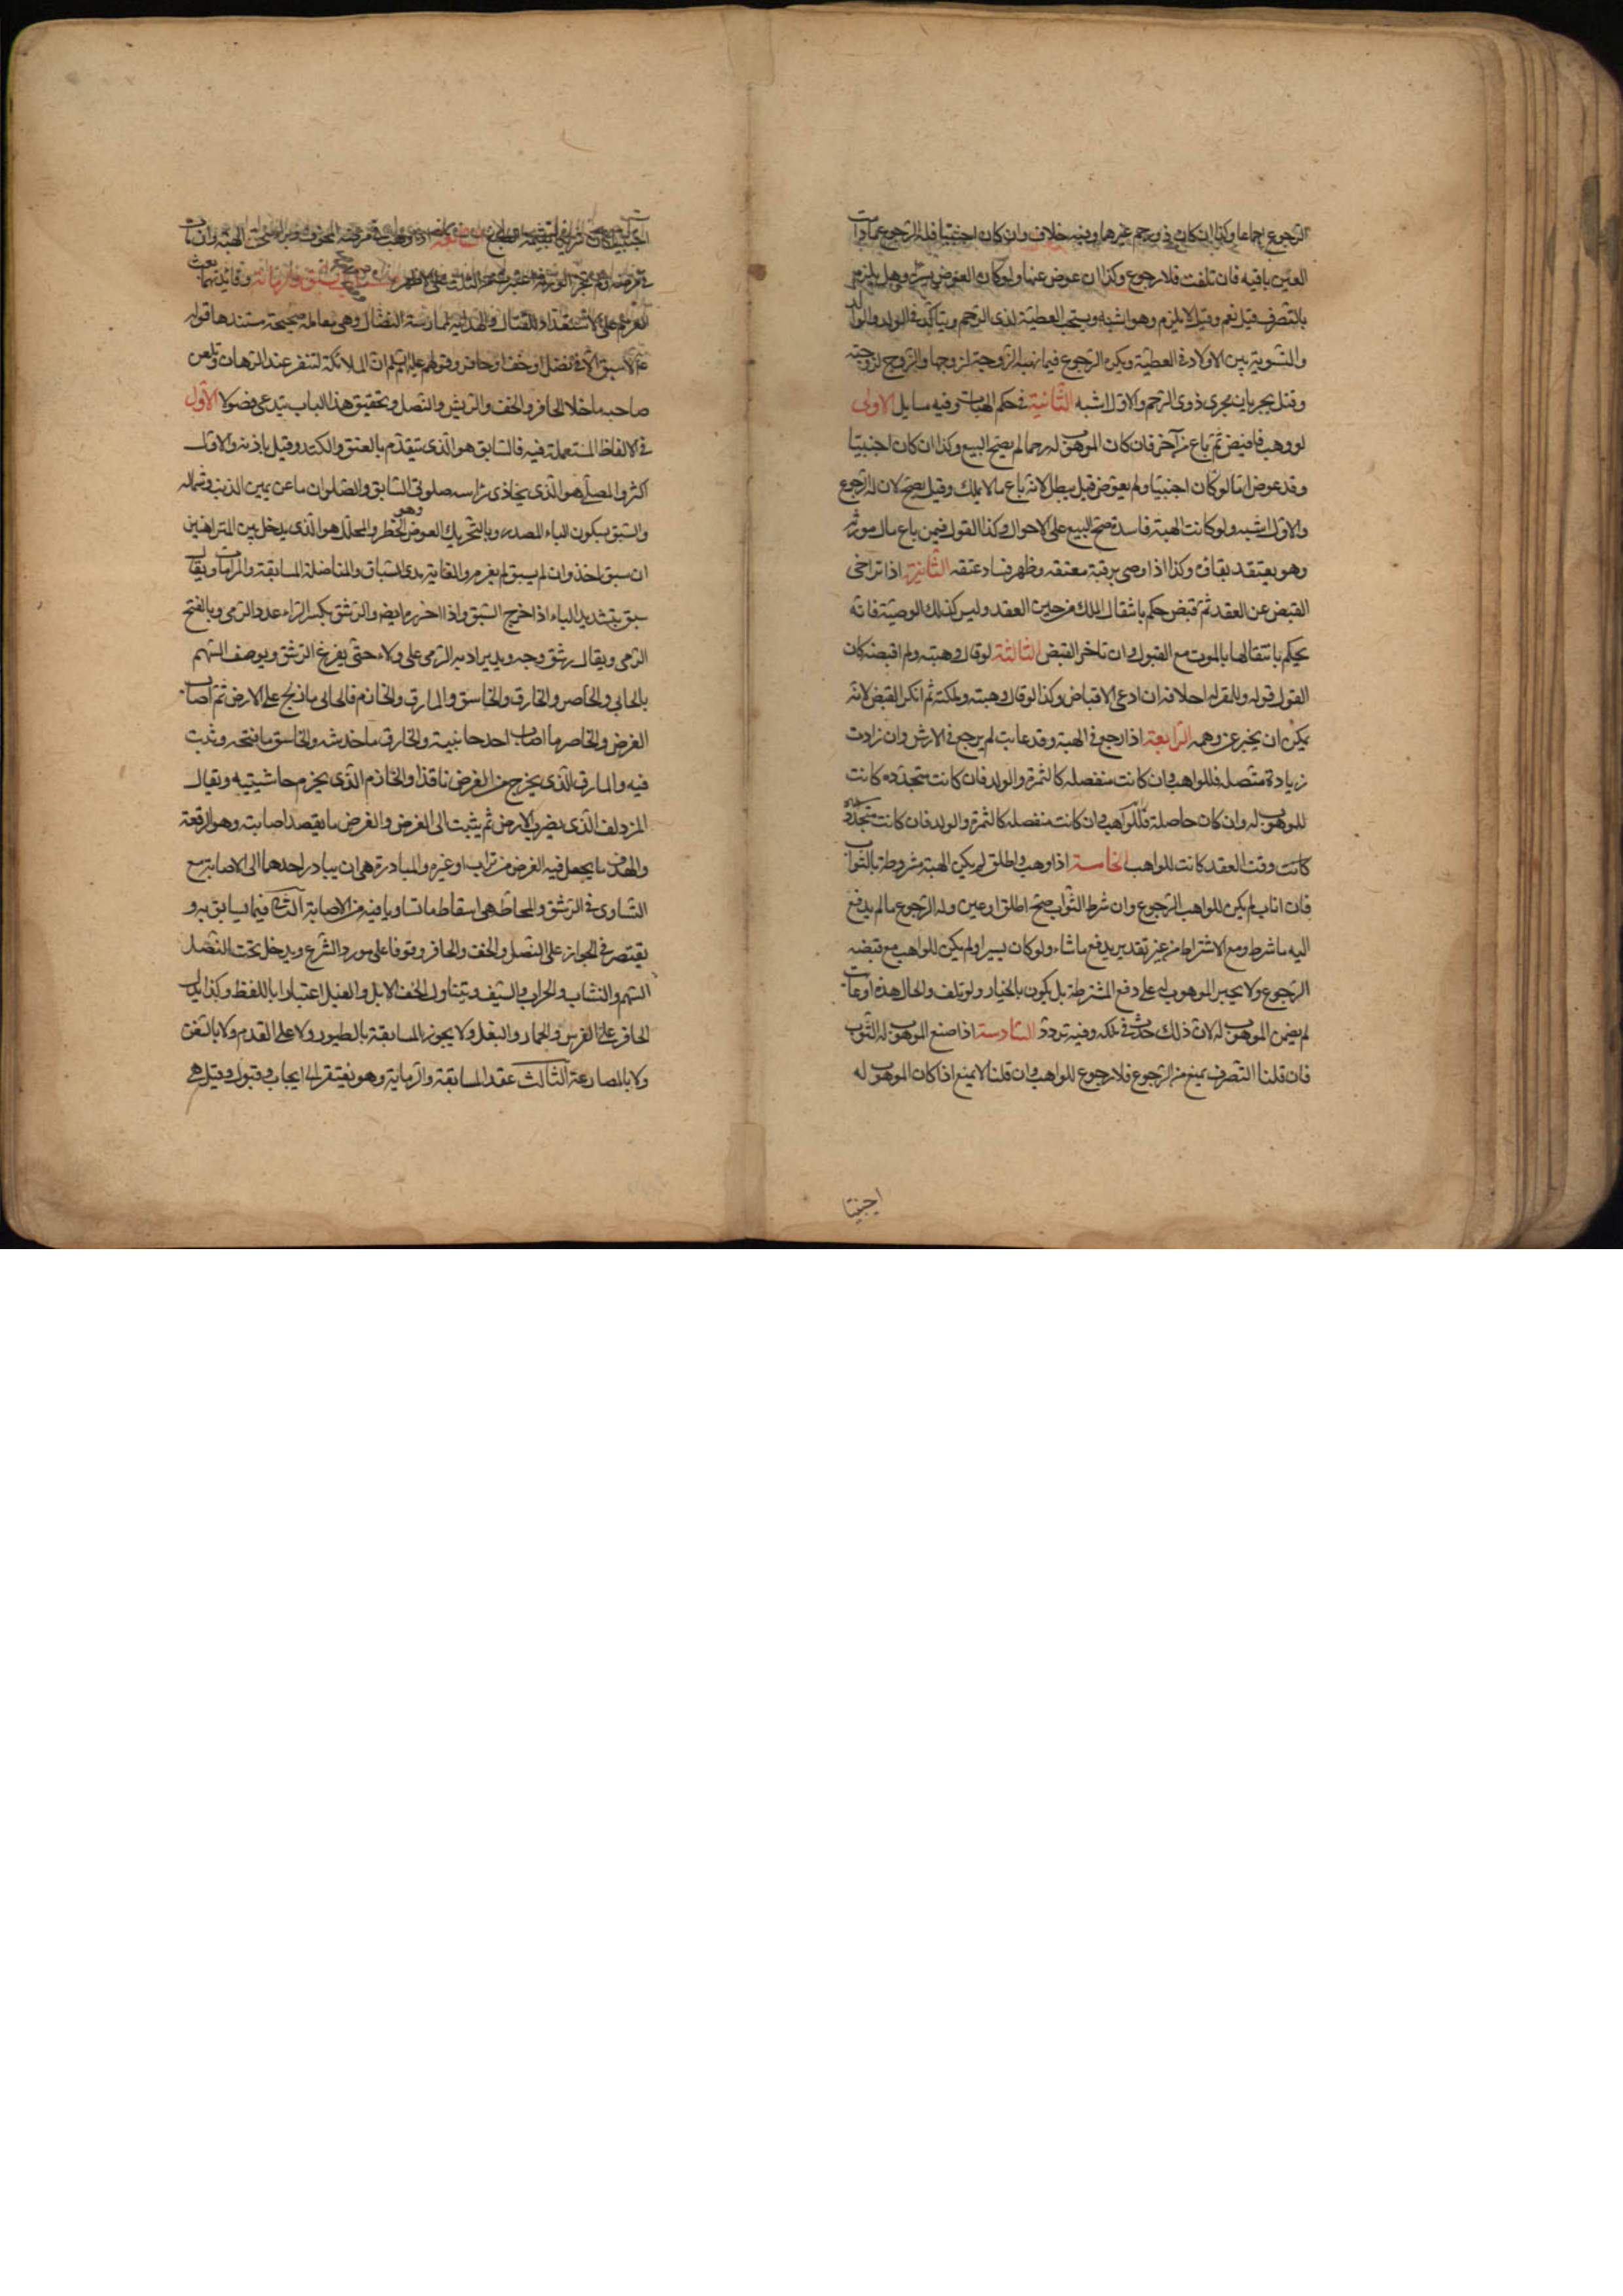 الرجوع اجماعا وكذا ان كان ذی رحم غيرهما وفيه خلاف وان كان اجنبيا فله الرجوع ما دامت
العين باقيه فان تلفت فلا رجوع وكذا ان عوض عنها ولو كان العوض يسيرا وهل يلزم
بالتصرف قيل نعم وقيل لا يلزم وهو اشبه ويستحب العطية لذی الرحم ويتاكد فی الولد والوالد
والتسوية بين الاولاد فی العطية ويكره الرجوع فيما تهبه الزوجة لزوجها والزوج لزوجته
وقيل يجريان مجری ذوی الرحم والاول اشبه الثانية فی حكم الهبات وفيه مسايل الاولى
لو وهب فاقبض ثم باع من آخر فان كان الموهوب له رحما لم يصح البيع وكذا ان كان اجنبيا
وقد عوض اما لو كان اجنبيا ولم يعوض قيل يبطل لانه باع ما لا يملك وقيل يصح لان له الرجوع
والاول اشبه ولو كانت الهبة فاسدة صح البيع على الاحوال وكذا القول فيمن باع مال مورثه
وهو يعتقد بقاه وكذا اذا اوصى برقبة معتقه وظهر فساد عتقه الثانية اذا تراخى
القبض عن العقد ثم قبض حكم بانتقال الملك من حين العقد وليس كذلك الوصية فانه
يحكم بانتقالها بالموت مع القبول وان تاخر القبض الثالثة لو قال وهبته ولم اقبضه كان
القول قوله وللمقر له احلافه ان ادعى الاقباض وكذا لو قال وهبته وملكته ثم انكر القبض لانه
يمكن ان يخبر عن وهمه الرابعة اذا رجع فی الهبة وقد عابت لم يرجع فی الارش وان زادت
زيادة متصله فللواهب وان كانت منفصله كالثمرة والولد فان كانت متجدده كانت
للموهوب له وان كان حاصلة فللواهب وان كانت منفصله كالثمرة والولد فان كانت متجدده
كانت وقت العقد كانت للواهب الخامسة اذا وهب واطلق لم يكن الهبة مشروطة بالثواب
فان اثاب لم يكن للواهب الرجوع وان شرط الثواب صح اطلق او عين وله الرجوع ما لم يدفع
اليه ما شرط ومع الاشتراط من غير تقدير يدفع ما شاء ولو كان يسيرا ولم يكن للواهب مع قبضه
الرجوع ولا يجبر الموهوب له على دفع المشترطة بل يكون بالخيار ولو تلف والحال هذه او عابت
لم يضمن الموهوب له لان ذلك حدث فی ملكه وفيه تردد السادسة اذا صنع الموهوب له الثوب
فان قلنا التصرف يمنع من الرجوع فلا رجوع للواهب وان قلنا لا يمنع اذا كان الموهوب له
اجنبيا
اجنبيا كان اذا وهب فی مرضه المخوف الهبة وان مات
فی مرضه ولم تجز الورثة اعتبرت من الثلث على الاظهر السبق والرماية وفائدتهما بعث
العزم على الاستعداد للقتال والهداية لممارسة النضال وهی معاملة صحيحة مستندها قوله
لا سبق الا فی نصل او خف او حافر وقوله عليه السلم ان الملائكة لتنفر عند الرهان وتلعن
صاحبه ما خلا الحافر والخف والريش والنصل وتحقيق هذا الباب يستدعی فصولا الاول
فی الالفاظ المستعملة فيه فالسابق هو الذی يتقدم بالعنق والكتد وقيل باذنه والاول
اكثر والمصلی هو الذی يحاذی راسه صلوی السابق والصلوان ما عن يمين الذنب وشماله
والسبق بسكون الباء المصدر وبالتحريك العوض وهو الخطر والمحلل هو الذی يدخل بين المتراهنين
ان سبق اخذ وان لم يسبق لم يغرم والغاية مدی السباق والمناضلة المسابقة والمرامات ويقال
سبق بتشديد الباء اذا اخرج السبق واذا احرزه ايضا والرشق بكسر الراء عدد الرمی وبالفتح
الرمی ويقال رشق وجه ويد يراد به الرمی على ولاء حتی يفرغ الرشق ويوصف السهم
بالحابی والخاصر والخارق والخاسق والمارق والخازم فالحابی ما زلج على الارض ثم اصاب
الغرض والخاصر ما اصاب احد جانبيه والخارق ما خدشه والخاسق ما فتحه وثبت
فيه والمارق الذی يخرج من الغرض نافذا والخازم الذی يخرم حاشيتيه ويقال
المزدلف الذی يضرب الارض ثم يثبت الی الغرض والغرض ما يقصد اصابته وهو الرقعة
والهدف ما يجعل فيه الغرض من تراب او غيره والمبادرة هی ان يبادر احدهما الی الاصابة مع
التساوی فی الرشق والمحاطة هی اسقاط ما تساويا فيه من الاصابة الثانی فيما يسابق به و
يقتصر فی الجواز على النصل والخف والحافر وقوفا على مورد الشرع ويدخل تحت النصل
السهم والنشاب والحراب والسيف ويتناول الخف الابل والفيل اعتبارا باللفظ وكذا يدل
الحافر على الفرس والحمار والبغل ولا يجوز المسابقة بالطيور ولا على القدم ولا بالسفن
ولا بالمصارعة الثالث عقد المسابقة والرماية وهو يفتقر الی ايجاب وقبول وقيل هی